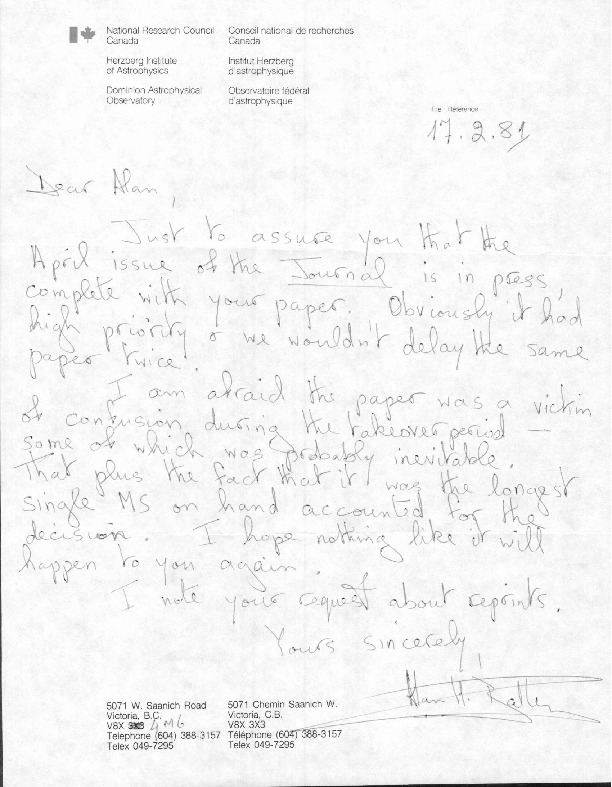 National Research Council Canada
Conseil national de recherches Canada
Herzberg Institute of Astrophysics
Institut Herzberg d'astrophysique
Dominion Astrophysical Observatory
Observatoire fédéral d'astrophysique
File Référence
17.2.81
Dear Alan,
Just to assure you that the
April issue of the Journal is in press,
complete with your paper. Obviously it had
high priority & we wouldn't delay the same
paper twice.
I am afraid the paper was a victim
of confusion during the takeover period —
some of which was probably inevitable.
That plus the fact that it was the longest
single MS on hand accounted for the
decision. I hope nothing like it will
happen to you again.
I note your request about reprints.
Yours sincerely,
Alan H. Batten
5071 W. Saanich Road
Victoria, B.C.
V8X 4M6
Telephone (604) 388-3157
Telex 049-7295
5071 Chemin Saanich W.
Victoria, C.B.
V8X 3X3
Téléphone (604) 388-3157
Telex 049-7295